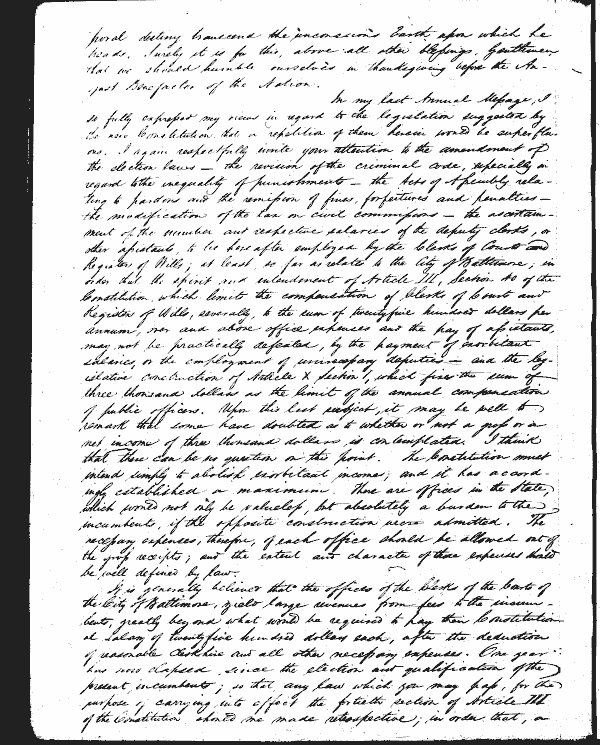 poral destiny transcend the unconscious Earth upon which he
treads. Surely it is for this, above all other blessings, Gentlemen
that we should humble ourselves in thanksgiving before the Au-
gust Benefactor of the Nation.
In my last Annual Message, I
so fully expressed my views in regard to the legislation suggested by
the new Constitution, that a repetition of them herein would be superflu-
ous. I again respectfully invite your attention to the amendment of
the election laws — the revision of the criminal code, especially in
regard to the inequality of punishments — the Acts of Assembly rela-
ting to pardons and the remission of fines, forfeitures and penalties —
the modification of the law on civil commissions — the ascertain-
ment of the number and respective salaries of the deputy clerks, or
other assistants, to be hereafter employed by the Clerks of Courts and
Register of Wills; at least, so far as relates to the City of Baltimore; in
order that the spirit and intendment of Article III, Section 40 of the
Constitution, which limits the compensation of Clerks of Court and
Register of Wills, severally, to the sum of twenty five hundred dollars per
annum, over and above office expenses and the pay of assistants,
may not be practically defeated, by the payment of exorbitant
salaries, or the employment of unnecessary deputies — and the leg-
islative construction of Article X Section 1, which fixes the sum of
three thousand dollars as the limit of the annual compensation
of public officers. Upon this last subject, it may be well to
remark that some have doubted as to whether or not a gross or a
net income of three thousand dollars is contemplated. I think
that there can be no question on the point. The Constitution must
intend simply to abolish exorbitant income; and it has accord-
ingly established a maximum. There are offices in the State,
which would not only be valueless, but absolutely a burden to the
incumbents, if the opposite construction were admitted. The
necessary expenses, therefore, of each office should be allowed out of
the gross receipts; and the extent and character of those expenses should
be well defined by law.
It is generally believed that the offices of the Clerks of the Courts of
the City of Baltimore, yield large revenues from fees to the incum-
bents, greatly beyond what would be required to pay their Constitution
al Salary of twenty five hundred dollars each, after the deduction
of reasonable clerkhire and all other necessary expenses. One year
has now elapsed, since the election and qualification of the
present incumbents; so that any law which you may pass, for the
purpose of carrying into effect the fortieth section of Article III
of the Constitution should be made retrospective; in order that, a